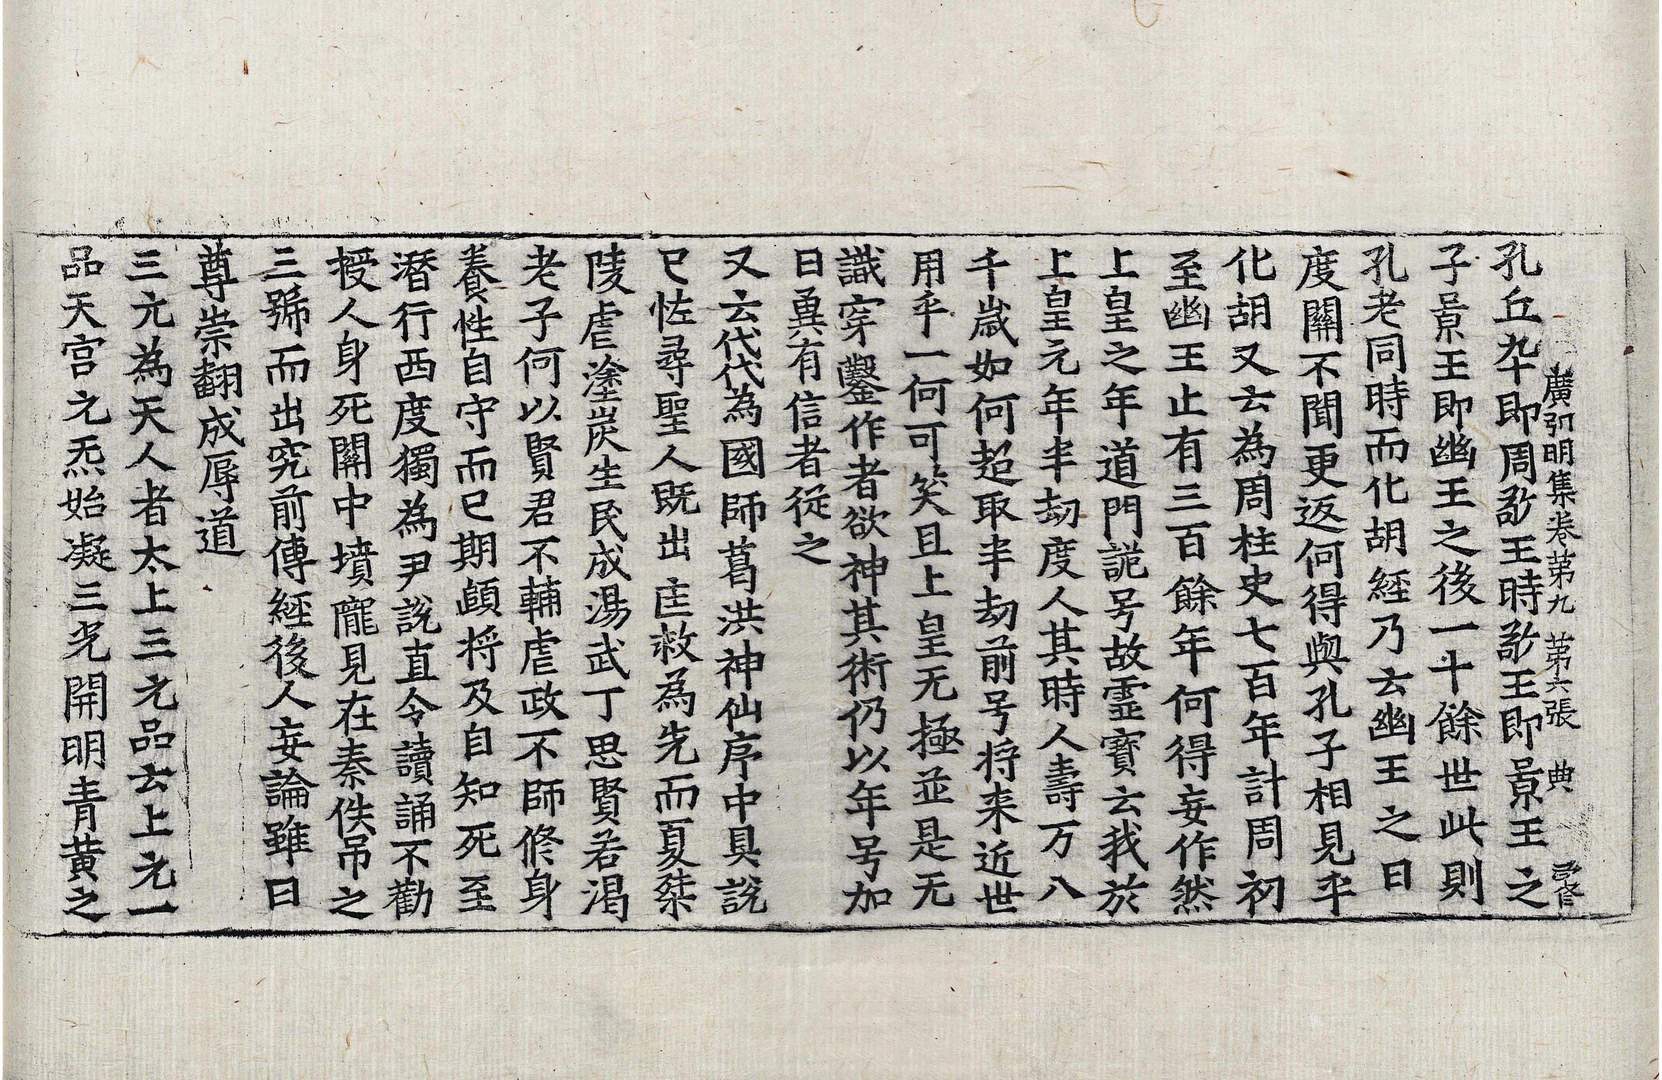 廣弘明集卷第九 第六張 典
孔丘卒即周敬王時敬王即景王之
子景王即幽王之後一十餘世此則
孔老同時而化胡經乃云幽王之日
度關不聞更返何得與孔子相見乎
化胡又云為周柱史七百年計周初
至幽王止有三百餘年何得妄作然
上皇之年道門詭号故靈寶云我於
上皇元年半劫度人其時人壽万八
千歲如何超取半劫前号将来近世
用乎一何可笑且上皇无極並是无
識穿鑿作者欲神其術仍以年号加
日冀有信者從之
又云代代為國師葛洪神仙序中具說
已怪尋聖人既出匡救為先而夏桀
陵虐塗炭生民成湯武丁思賢若渴
老子何以賢君不輔虐政不師修身
養性自守而已期頤将及自知死至
潛行西度獨為尹說直令讀誦不勸
授人身死關中墳壠見在秦佚吊之
三號而出究前傳經後人妄論雖曰
尊崇翻成辱道
三元為天人者太上三元品云上元一
品天宮元炁始凝三光開明青黃之